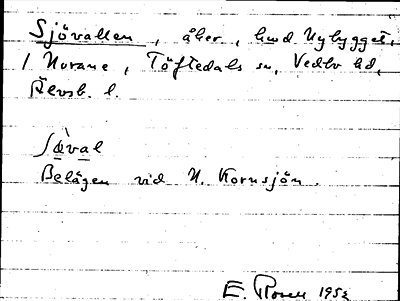 Sjövallen, åker, hmd Nybygget,
/ Norane, Töftedals sn, Vedbo hd,
Älvsb. l.
Belägen vid N. Kornsjön.
E. Rosell 1952